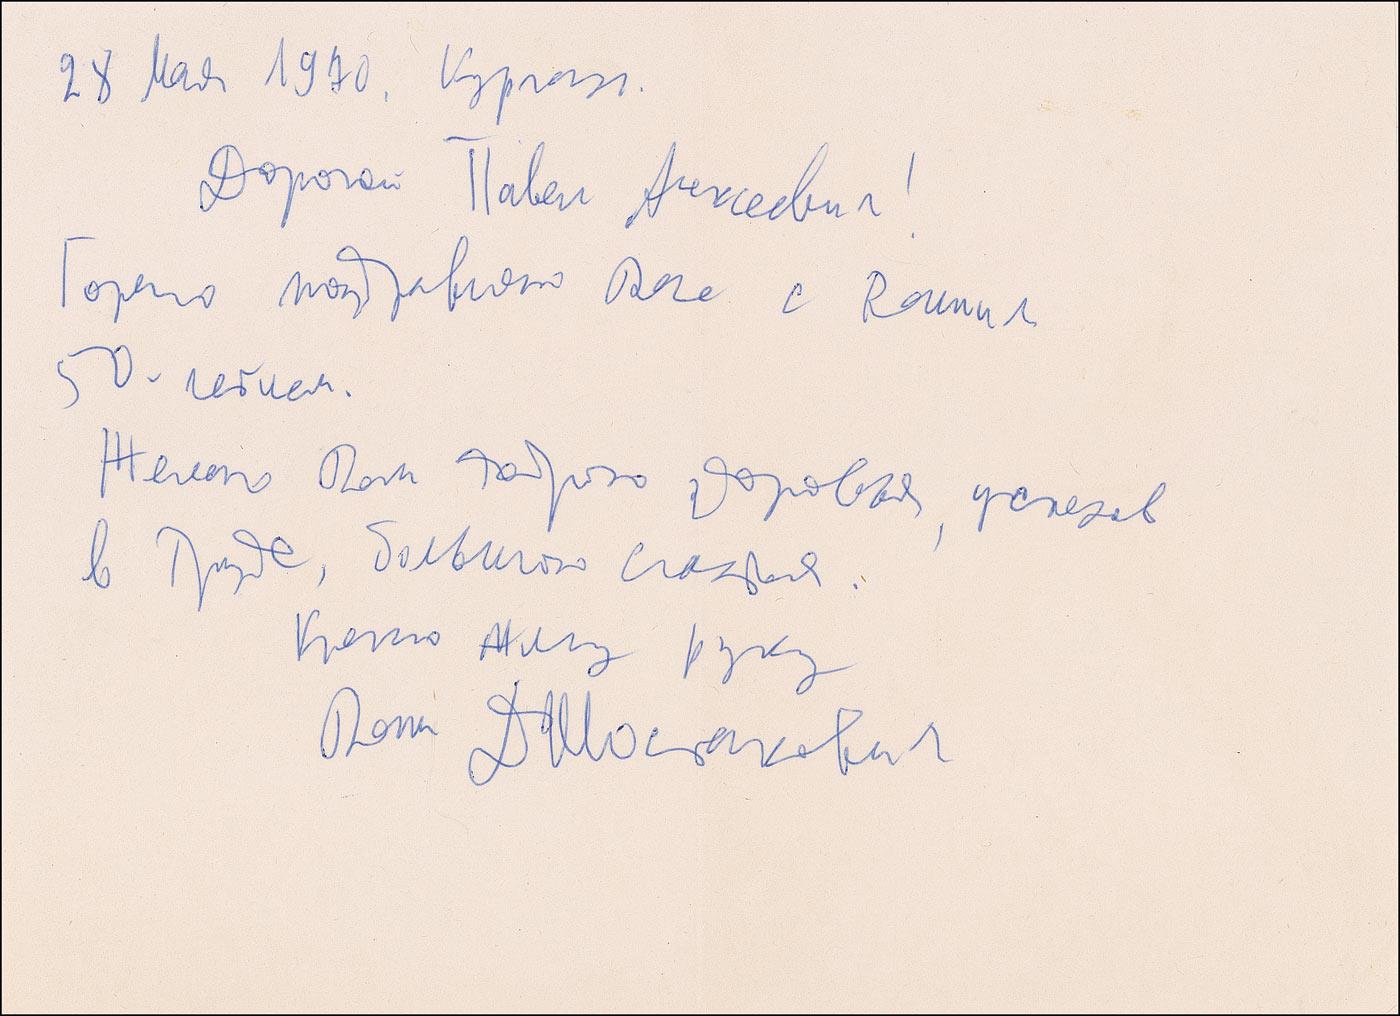 28 мая 1970. Курган.
Дорогой Павел Алексеевич!
Горячо поздравляю Вас с Вашим
50-летием.
Желаю Вам доброго здоровья, успехов
в труде, большого счастья.
Крепко жму руку
Ваш Д Шостакович